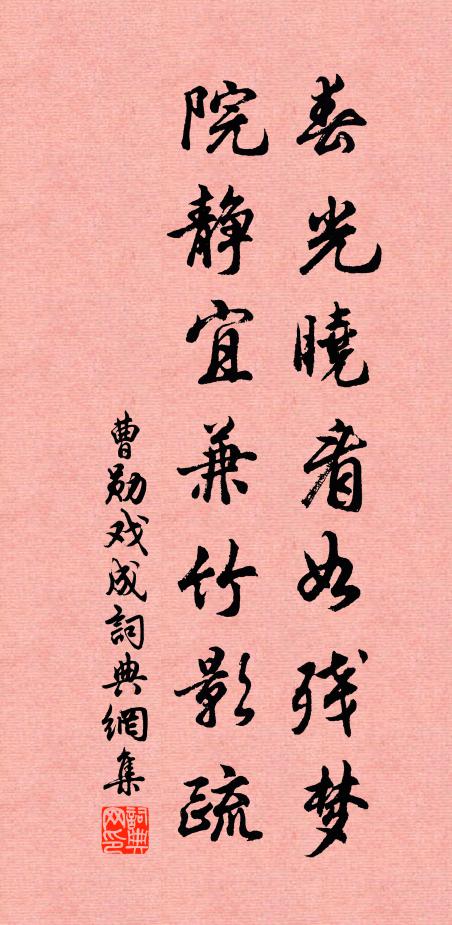 春光曉看如残梦
院静宜兼竹影疏
曹勋戏成詞典網集
詞典网印